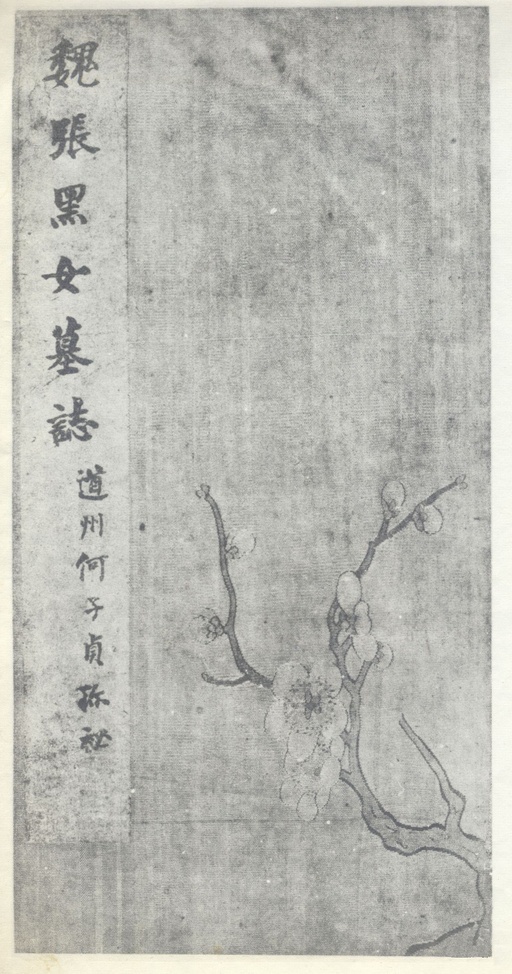 魏張黑女墓誌
道州何子貞珎祕